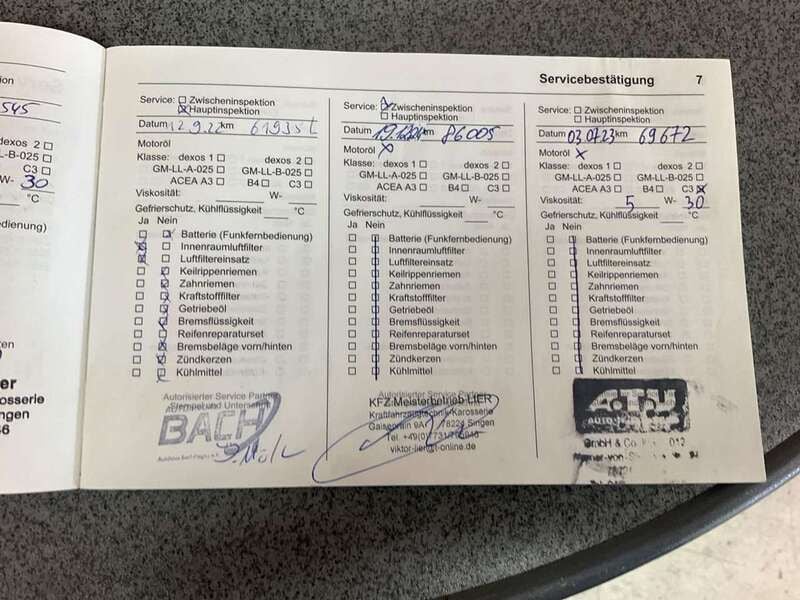 545
dexos 2
LL-B-025
C3
W- 30
°C
Servicebestätigung 7
Service: Zwischeninspektion
Hauptinspektion
Datum 12.9.22 km 61935
Motoröl
Klasse: dexos 1 dexos 2
GM-LL-A-025 GM-LL-B-025
ACEA A3 B4 C3
Viskosität: W-
Gefrierschutz, Kühlflüssigkeit °C
Ja Nein
Batterie (Funkfernbedienung)
Innenraumluftfilter
Luftfiltereinsatz
Keilrippenriemen
Zahnriemen
Kraftstofffilter
Getriebeöl
Bremsflüssigkeit
Reifenreparaturset
Bremsbeläge vorn/hinten
Zündkerzen
Kühlmittel
Autorisierter Service Partner
Stempel und Unterschrift
BACH
Service: Zwischeninspektion
Hauptinspektion
Datum km 86005
Motoröl X
Klasse: dexos 1 dexos 2
GM-LL-A-025 GM-LL-B-025
ACEA A3 B4 C3
Viskosität: W-
Gefrierschutz, Kühlflüssigkeit °C
Ja Nein
Batterie (Funkfernbedienung)
Innenraumluftfilter
Luftfiltereinsatz
Keilrippenriemen
Zahnriemen
Kraftstofffilter
Getriebeöl
Bremsflüssigkeit
Reifenreparaturset
Bremsbeläge vorn/hinten
Zündkerzen
Kühlmittel
Autorisierter Service Partner
KFZ Meisterbetrieb LIER
Kraftfahrzeugtechnik Karosserie
78224 Singen
viktor-lier@t-online.de
Service: Zwischeninspektion
Hauptinspektion
Datum 03.07.23 km 69672
Motoröl X
Klasse: dexos 1 dexos 2
GM-LL-A-025 GM-LL-B-025
ACEA A3 B4 C3
Viskosität: 5 W- 30
Gefrierschutz, Kühlflüssigkeit °C
Ja Nein
Batterie (Funkfernbedienung)
Innenraumluftfilter
Luftfiltereinsatz
Keilrippenriemen
Zahnriemen
Kraftstofffilter
Getriebeöl
Bremsflüssigkeit
Reifenreparaturset
Bremsbeläge vorn/hinten
Zündkerzen
Kühlmittel
A.T.U
GmbH & Co.